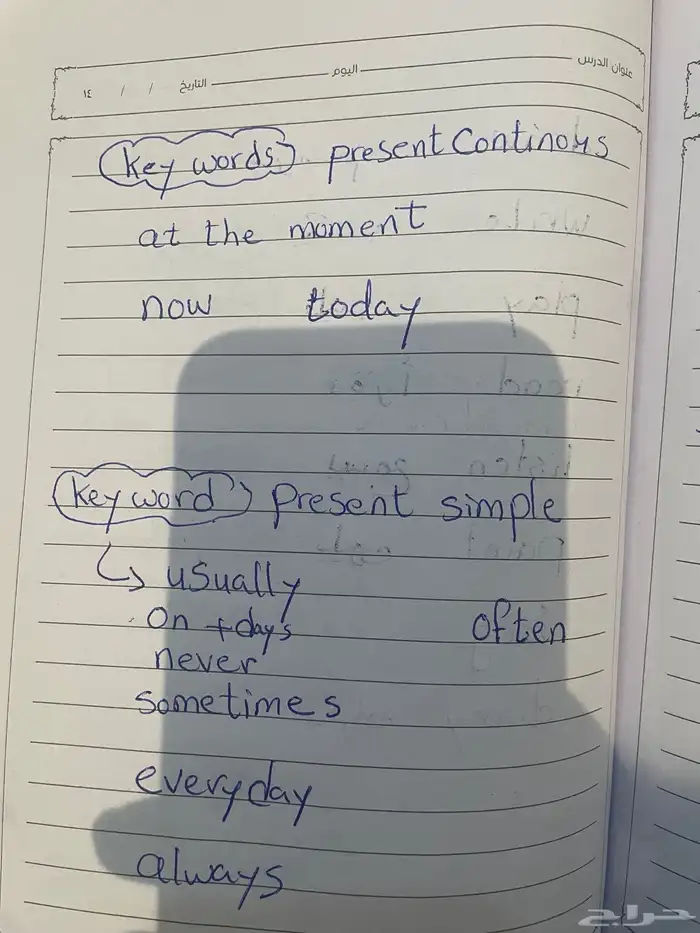 عنوان الدرس اليوم التاريخ / / ١٤
Key words present Continous
at the moment
now today
Key word present simple
usually
On + day's often
never
sometimes
everyday
always
حراج